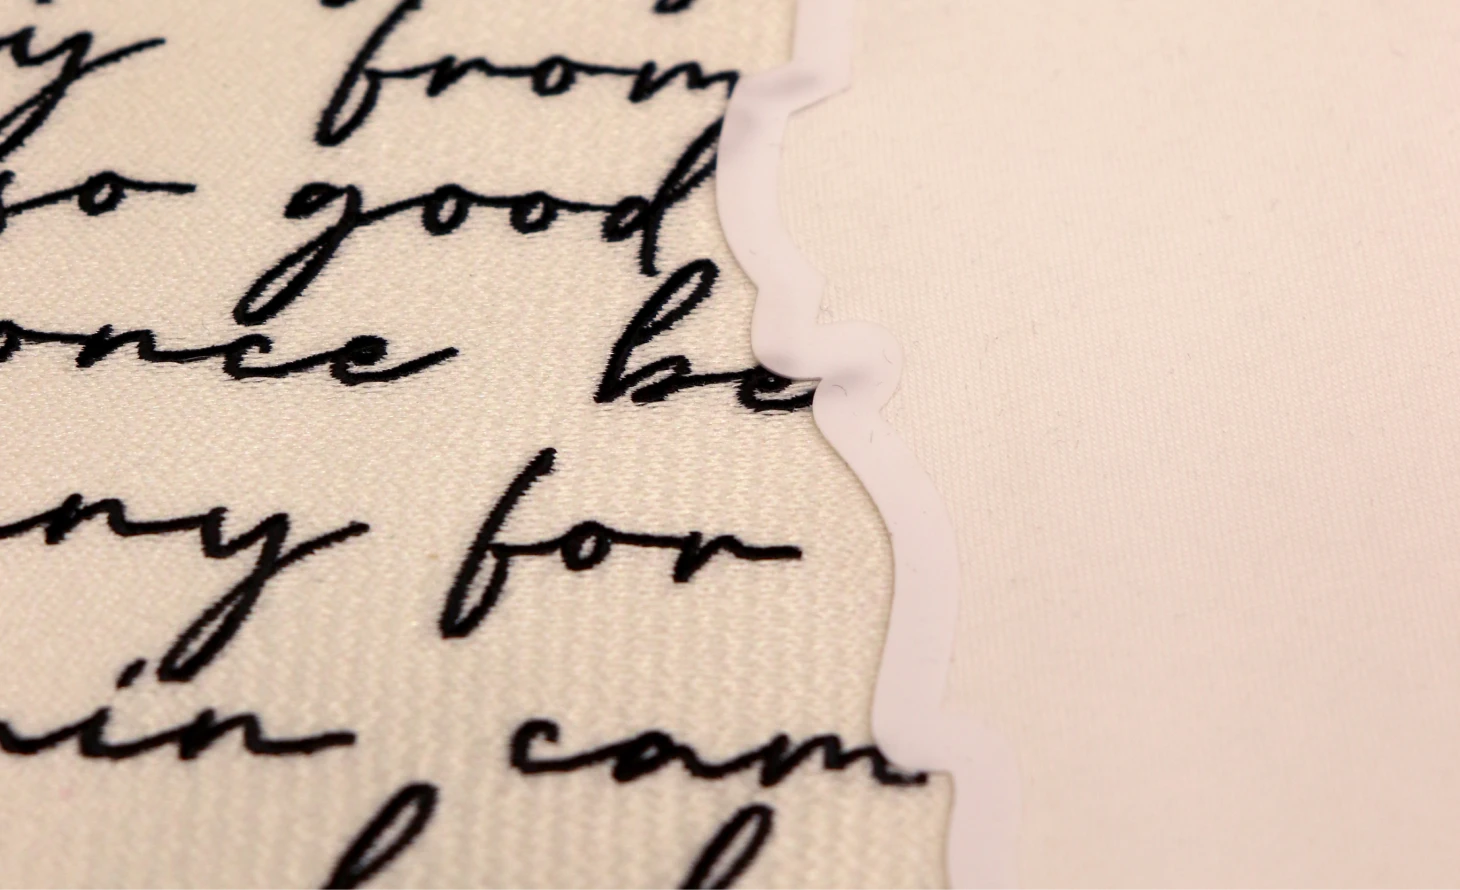 from
so good
once be
ny for
in cam